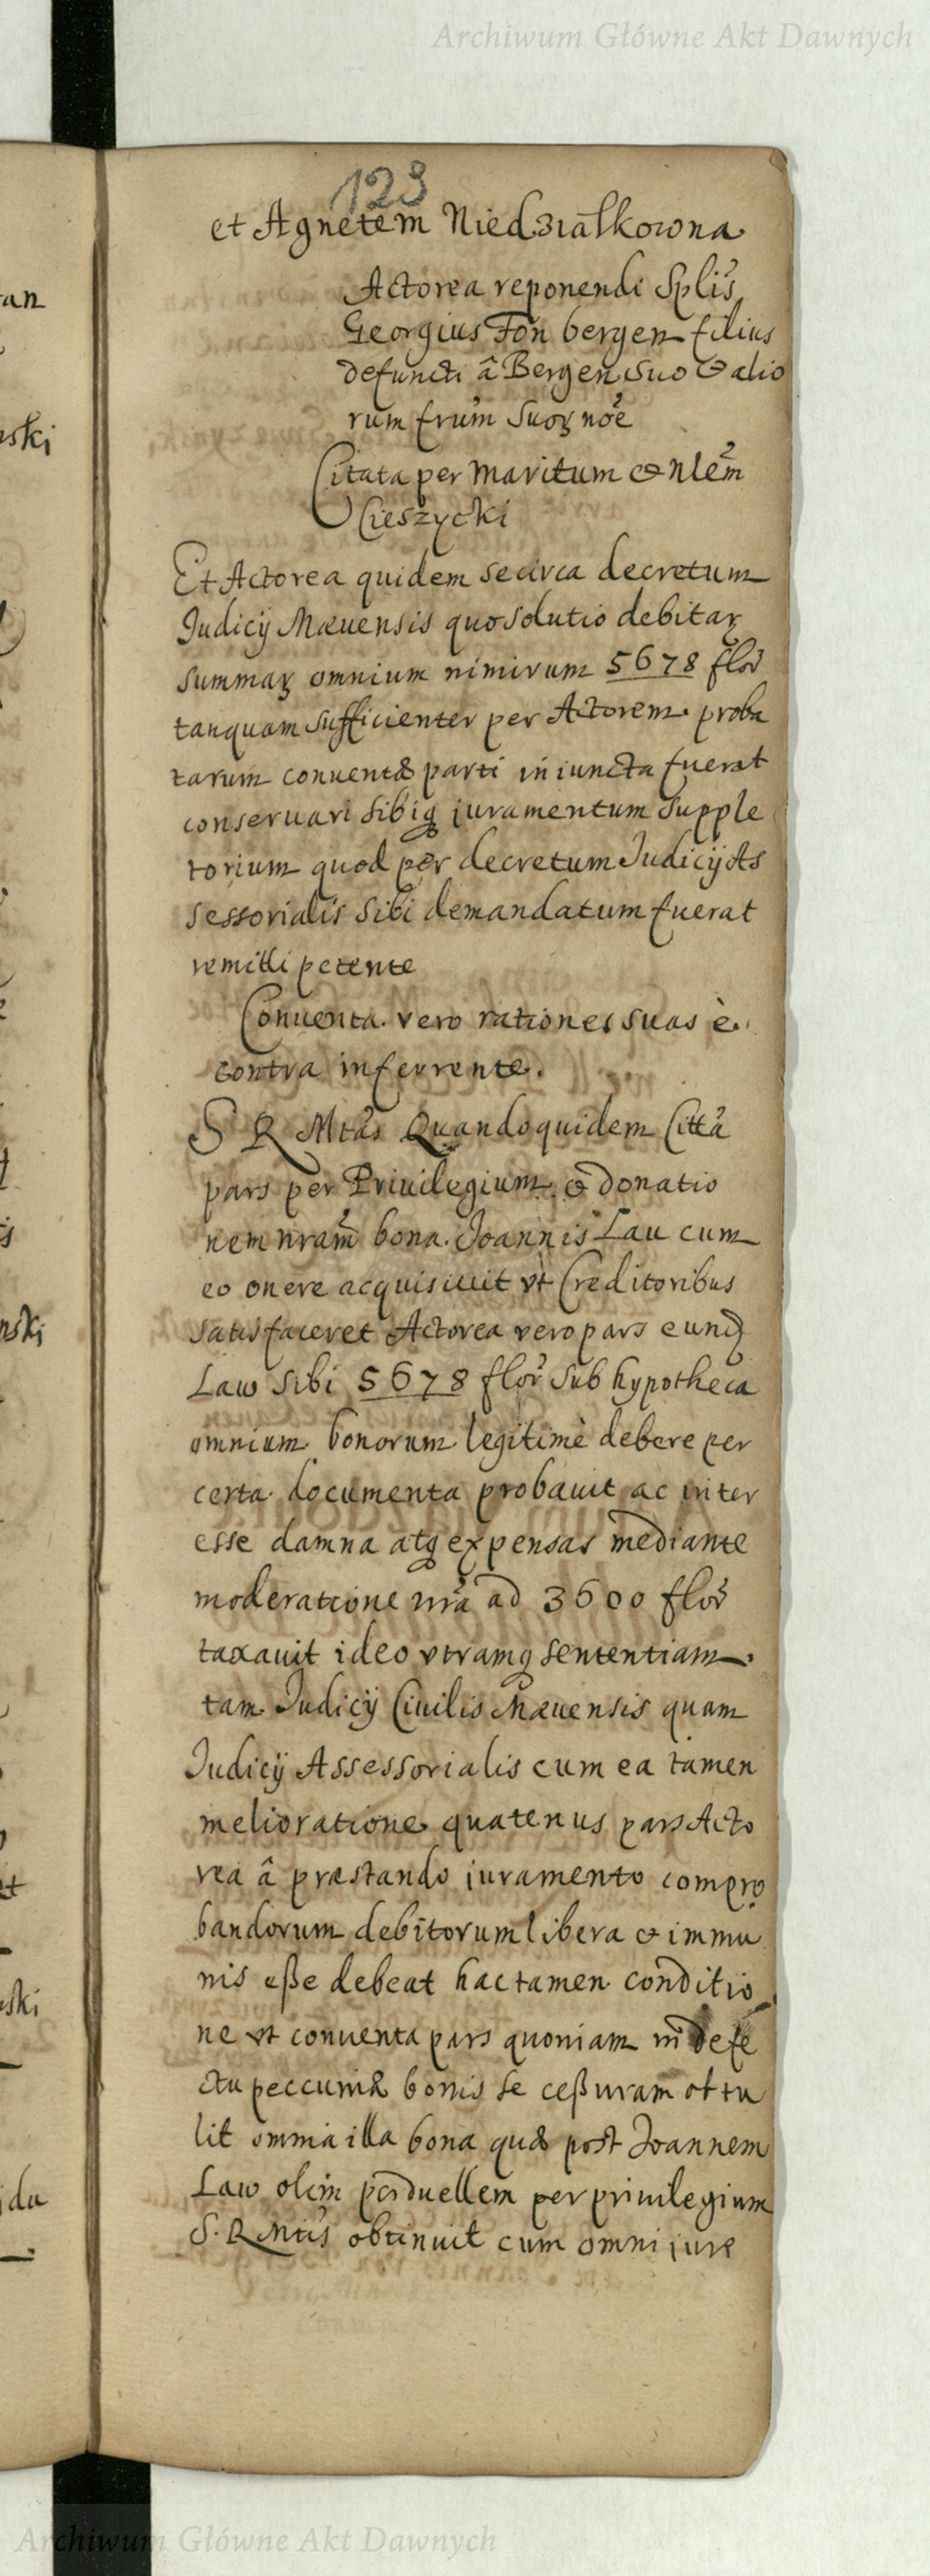 Archiwum Główne Akt Dawnych
123
et Agnetem Niedzialkowna
Actorea reponendi Splis
Georgius Fon bergen filius
defuncti â Bergen suo & alio
rum frum Suoꝝ noe
Citata per maritum & nlem
Cieszycki
Et Actorea quidem se circa decretum
Judicij Mæuensis quo solutio debitaꝝ
summaꝝ omnium nimirum 5678 flor
tanquam sufficienter per Actorem proba
tarum conuentæ parti iniuncta fuerat
conseruari sibiq iuramentum supple
torium quod per decretum Judicij As
sessorialis sibi demandatum fuerat
remitti petente
Conuenta vero rationes suas è
contra inferrente.
S R Mtas Quandoquidem Citta
pars per Priuilegium & donatio
nem nram bona Joannis Lau cum
eo onere acquisiuit vt Creditoribus
satisfaceret Actorea vero pars eund
Law sibi 5678 flor sub hypotheca
omnium bonorum legitimè debere per
certa documenta probauit ac inter
esse damna atq expensas mediante
moderatione nra ad 3600 flor
taxauit ideo vtramq sententiam
tam Judicij Ciuilis Mæuensis quam
Judicij Assessorialis cum ea tamen
melioratione quatenus pars Acto
rea â præstando iuramento compro
bandorum debitorum libera & immu
nis eße debeat hac tamen conditio
ne vt conuenta pars quoniam in defe
ctu peccuniæ bonis se ceßuram obtu
lit omnia illa bona quæ post Joannem
Law olim perduellem per priuilegium
S. R Mtis obtinuit cum omni iure
an
ski
nski
t
ski
idu
Archiwum Główne Akt Dawnych